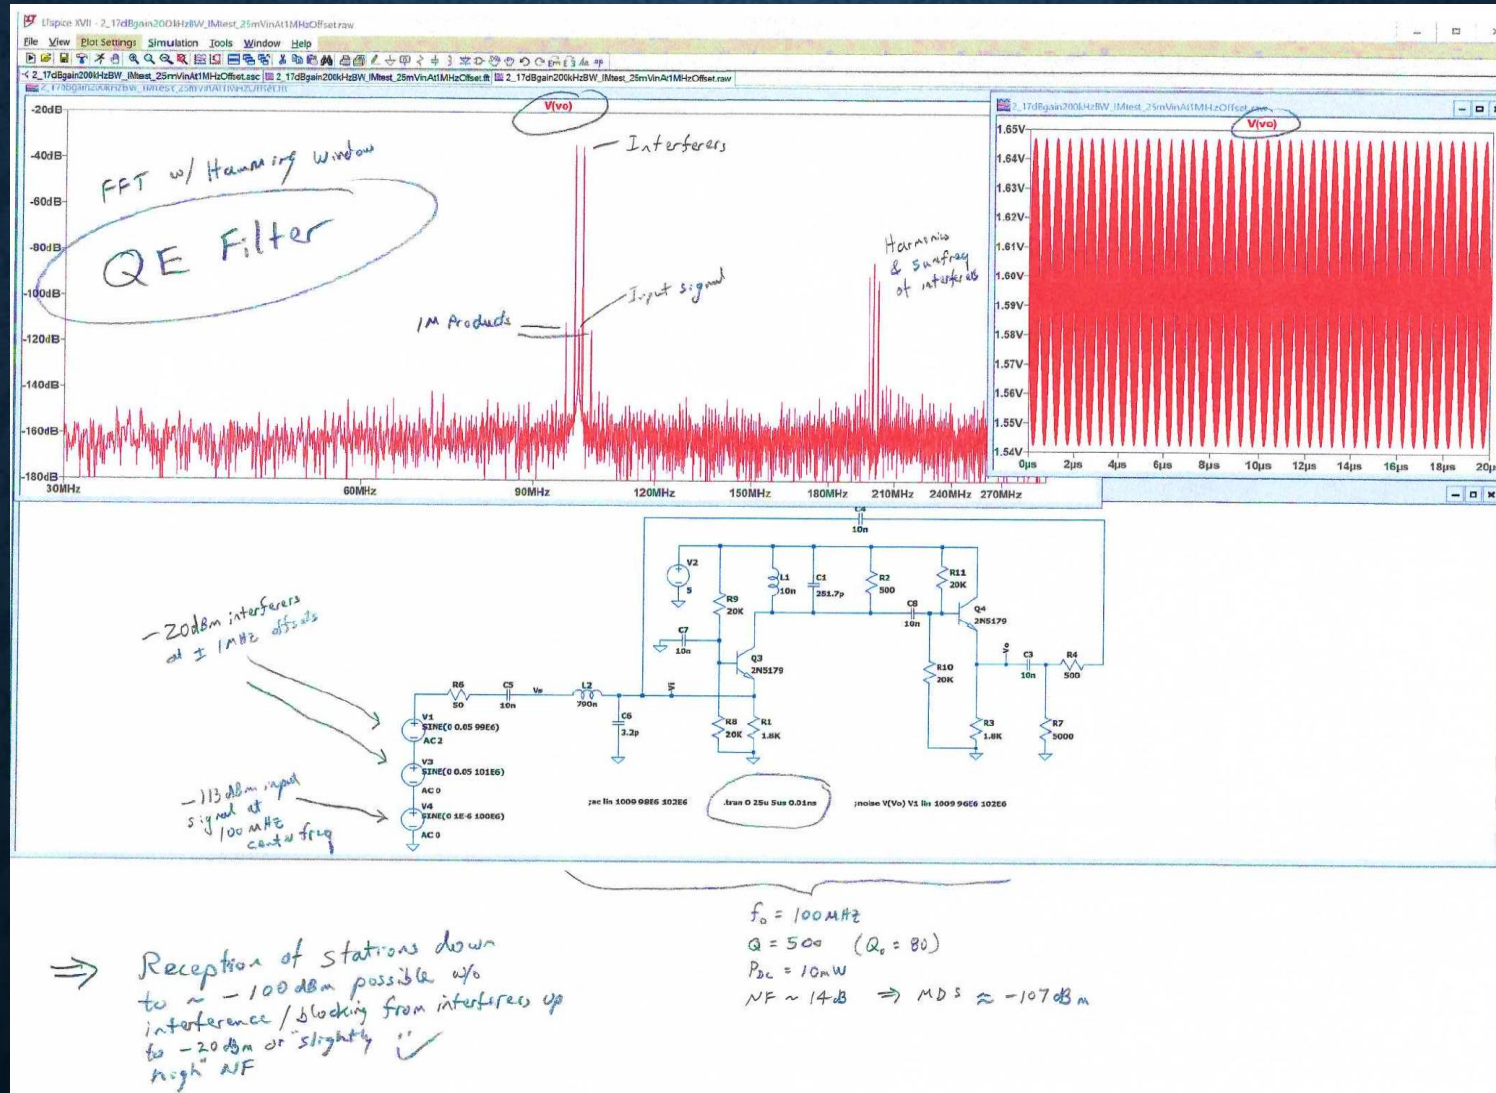 LTspice XVII - 2_17dBgain200kHzBW_IMtest_25mVinAt1MHzOffset.raw
File View Plot Settings Simulation Tools Window Help
2_17dBgain200kHzBW_IMtest_25mVinAt1MHzOffset.asc 2_17dBgain200kHzBW_IMtest_25mVinAt1MHzOffset.fft 2_17dBgain200kHzBW_IMtest_25mVinAt1MHzOffset.raw
2_17dBgain200kHzBW_IMtest_25mVinAt1MHzOffset.fft
V(vo)
-20dB
-40dB
-60dB
-80dB
-100dB
-120dB
-140dB
-160dB
-180dB
30MHz 60MHz 90MHz 120MHz 150MHz 180MHz 210MHz 240MHz 270MHz
FFT w/ Hamming Window
QE Filter
Interferers
Input signal
IM Products
Harmonics
& sumfreq
of interferers
2_17dBgain200kHzBW_IMtest_25mVinAt1MHzOffset.raw
V(vo)
1.65V
1.64V
1.63V
1.62V
1.61V
1.60V
1.59V
1.58V
1.57V
1.56V
1.55V
1.54V
0µs 2µs 4µs 6µs 8µs 10µs 12µs 14µs 16µs 18µs 20µs
C4
10n
V2
5
R9
20K
L1
10n
C1
251.7p
R2
500
R11
20K
C8
10n
Q4
2N5179
C7
10n
Q3
2N5179
R10
20K
Vo
C3
10n
R4
500
R6
50
C5
10n
Vs
L2
790n
Vi
C6
3.2p
R8
20K
R1
1.8K
R3
1.8K
R7
5000
V1
SINE(0 0.05 99E6)
AC 2
V3
SINE(0 0.05 101E6)
AC 0
V4
SINE(0 1E-6 100E6)
AC 0
-20dBm interferers
at ± 1MHz offsets
-113 dBm input
signal at
100 MHz
center freq
;ac lin 1009 98E6 102E6
.tran 0 25u 5us 0.01ns
;noise V(Vo) V1 lin 1009 96E6 102E6
f₀ = 100MHz
Q = 500 (Q₀ = 80)
P_DC = 10mW
NF ~ 14dB ⇒ MDS ≈ -107dBm
⇒ Reception of stations down
to ~ -100 dBm possible w/o
interference / blocking from interferers up
to -20 dBm or "slightly
high" NF